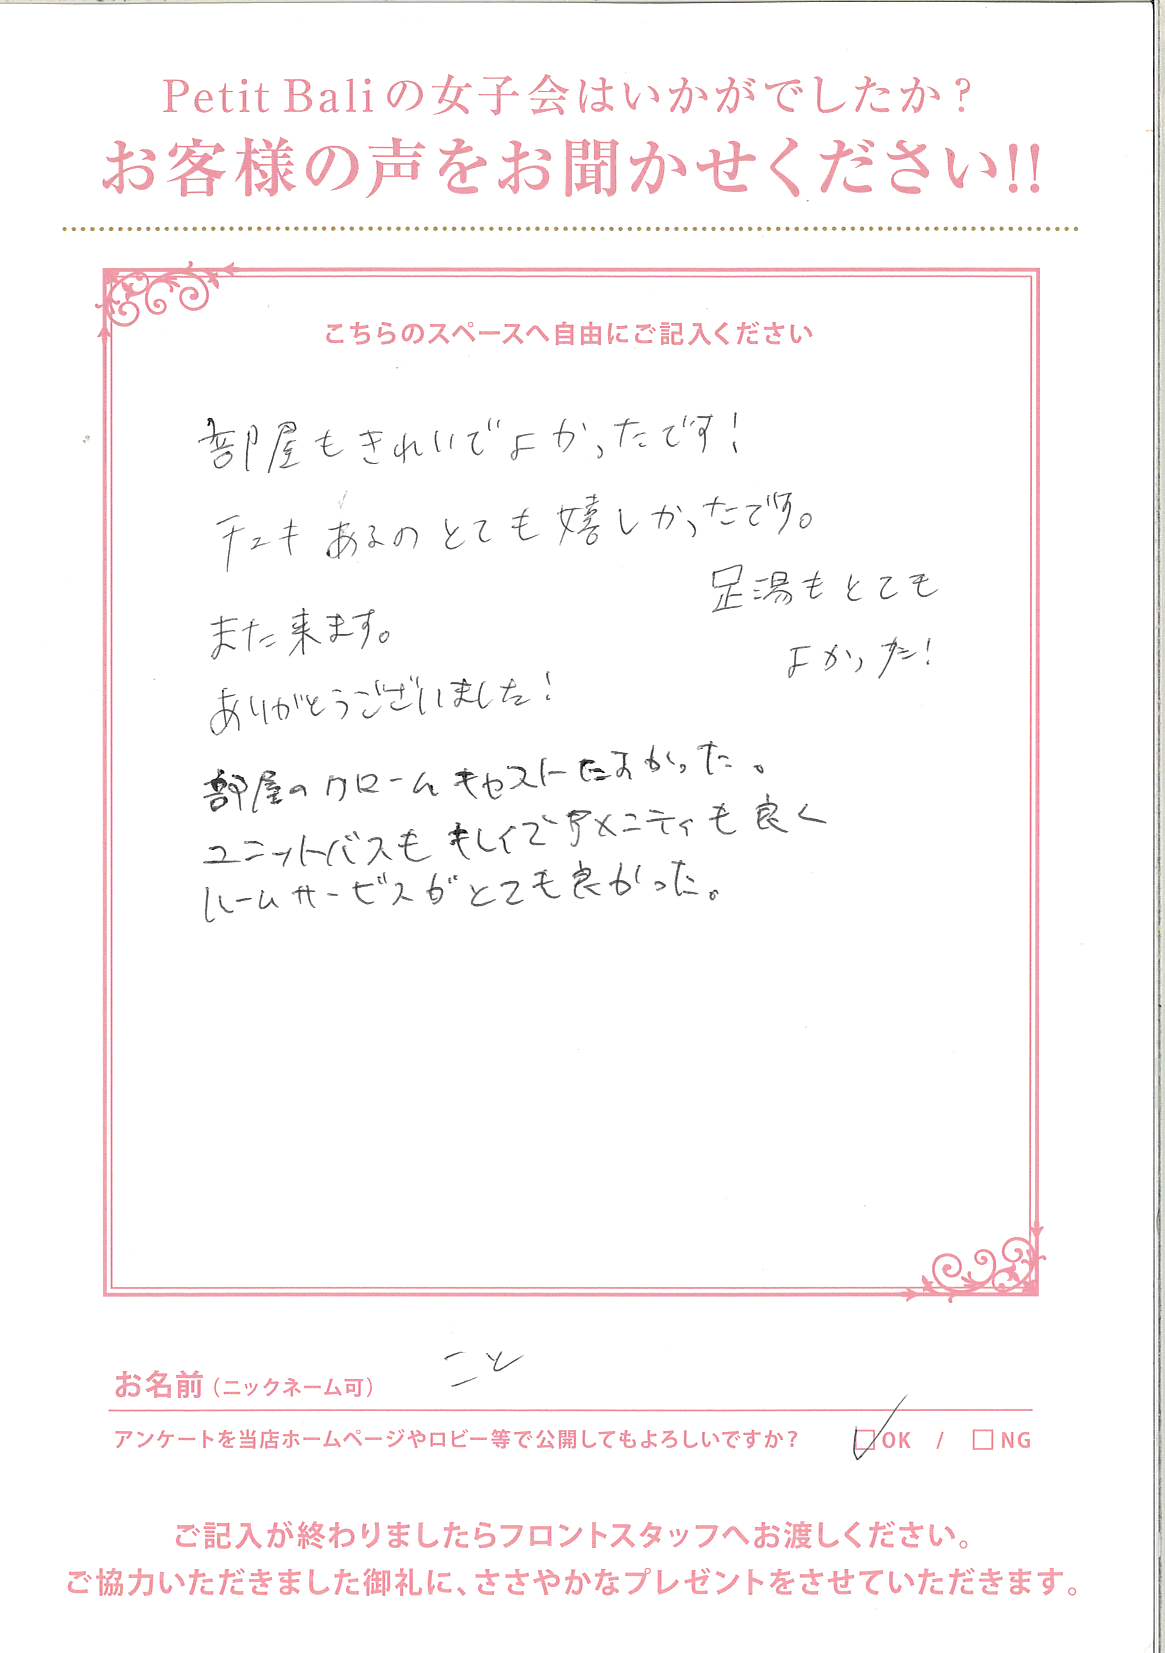 Petit Baliの女子会はいかがでしたか？
お客様の声をお聞かせください!!
こちらのスペースへ自由にご記入ください
部屋もきれいでよかったです！
チェキあるのとても嬉しかったです。
足湯もとても
よかった！
また来ます。
ありがとうございました！
部屋のクロームキャスト よかった。
ユニットバスもキレイでアメニティも良く
ルームサービスがとても良かった。
こと
お名前（ニックネーム可）
アンケートを当店ホームページやロビー等で公開してもよろしいですか？ ☑OK / □NG
ご記入が終わりましたらフロントスタッフへお渡しください。
ご協力いただきました御礼に、ささやかなプレゼントをさせていただきます。